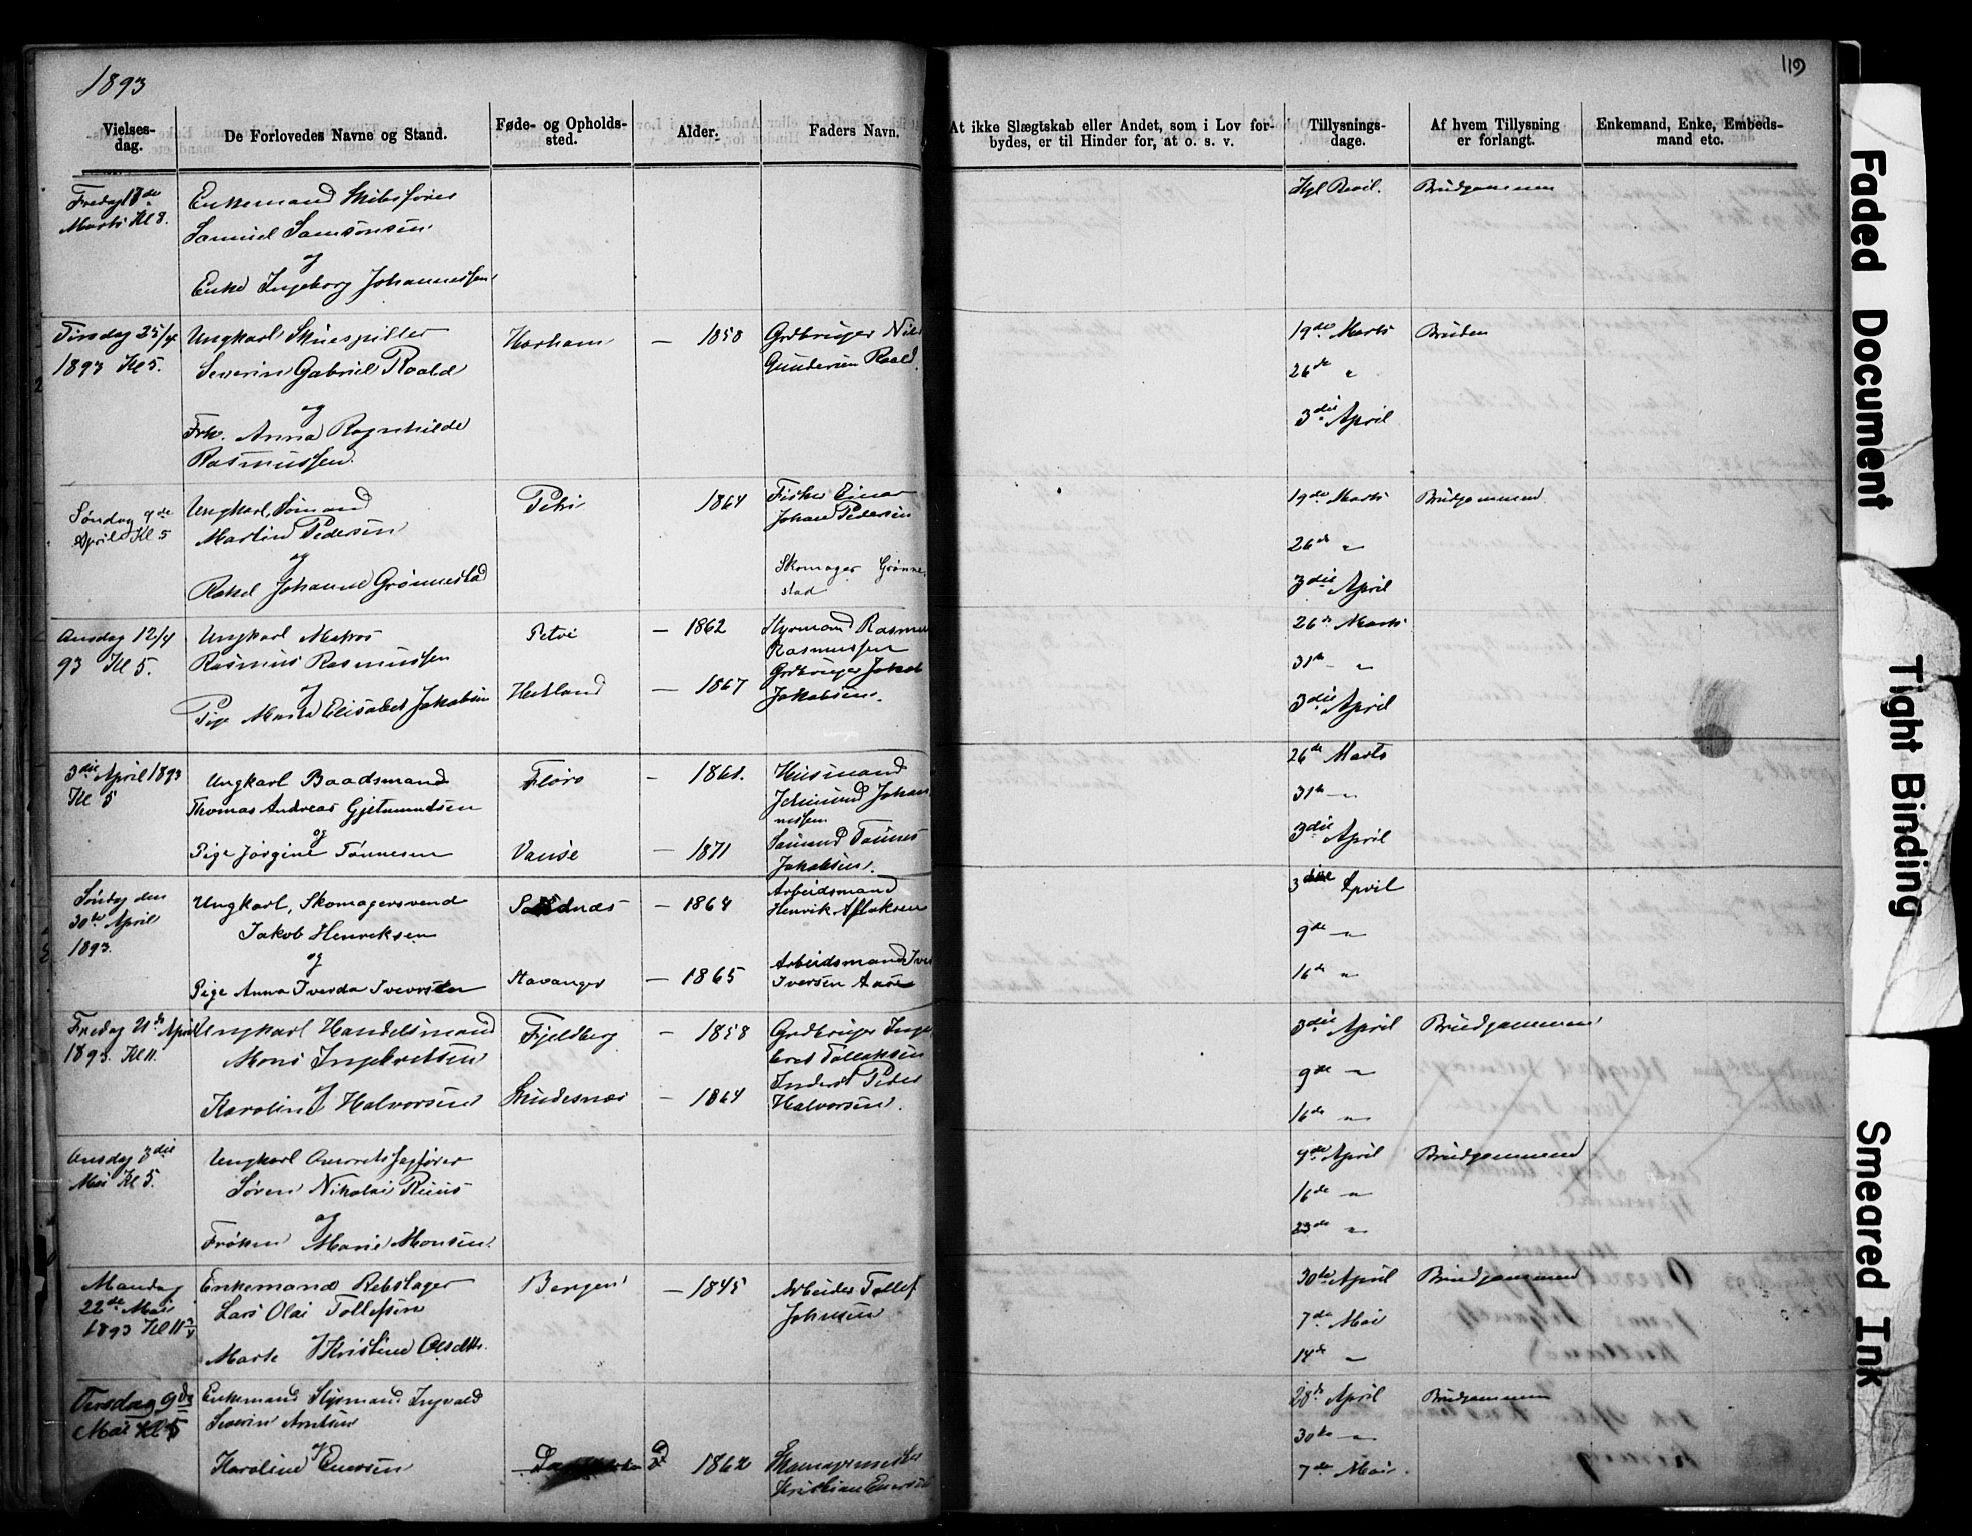 1893
119
Vielses-
dag.
De Forlovedes Navne og Stand.
Føde- og Opholds-
sted.
Alder.
Faders Navn.
At ikke Slægtskab eller Andet, som i Lov for-
bydes, er til Hinder for, at o. s. v.
Tillysnings-
dage.
Af hvem Tillysning
er forlangt.
Enkemand, Enke, Embeds-
mand etc.
Fredag 17de
Marts Kl 8.
Enkemand Skibsfører
Samuel Samsonsen
og
Enke Ingeborg Johannessen
Kgl Bevil.
Brudgommen
Tirsdag 25/4
1893 Kl 5.
Ungkarl Skuespiller
Severin Gabriel Roald
og
Frk. Anna Ragnhilde
Rasmussen
Harham
— 1850
Grdbruger Nils
Gundersen Roald
19de Marts
26de "
3die April
Bruden
Søndag 9de
April Kl 5
Ungkarl, Sømand
Martin Pedersen
og
Rakel Johanne Grønnestad
Petri
1864
Fisker Einar
Johan Pedersen
Skomager Grønne-
stad
19de Marts
26de "
3die April
Brudgommen
Onsdag 12/4
93 Kl 5.
Ungkarl Matros
Rasmus Rasmussen
og
Pige Marta Elisabet Jakobsen
Petri
Hetland
— 1862
— 1867
Styrmand Rasmus
Rasmussen
Grdbruger Jakob
Jakobsen.
26de Marts
31te "
3die April
3die April 1893
Kl 5
Ungkarl Baadsmand
Thomas Andreas Gjetmundsen
og
Pige Jørgine Tønnesen
Florø
Vanse
— 1861.
— 1871
Husmand
Johan
nessen
Tønnes
Jakobsen.
26de Marts
31te "
3die April
Søndag den
30te April
1893.
Ungkarl, Skomagersvend
Jakob Henriksen
og
Pige Anna Iverda Iversen
Sandnæs
Stavanger
— 1864
— 1865
Arbeidsmand
Henrik Aslaksen
Arbeidsmand Iver
Iversen Aase
3die April
9de "
16de "
Fredag 21de April
1893. Kl 11.
Ungkarl Handelsmand
Mons Ingebretsen
og
Karoline Halvorsen
Fjeldberg
Skudesnæs
— 1858
— 1864
Grdbruger Inge
bret Tollaksen
Inderst Peder
Halvorsen.
3die April
9de "
16de "
Brudgommen
Onsdag 3die
Mai Kl 5.
Ungkarl Overretssagfører
Søren Nikolai Ruus
og
Frøken Marie Monsen.
9de April
16de "
23de "
Brudgommen
Mandag
22de Mai
1893 Kl 11 3/4
Enkemand Rebslager
Lars Olai Tollefsen
Marte Kristine Olsdtr.
Bergen
— 1845
Arbeider Tollef
Johnsen
30te April
7de Mai
14de "
Brudgommen
Tirsdag 9de
Mai Kl 5
Enkemand Styrmand Ingvald
Severin Arntsen
og
Karoline Enersen
1862
Skomagermester
Kristian Enersen
28de April
30te "
7de Mai.
Brudgommen
Faded Document
Tight Binding
Smeared Ink